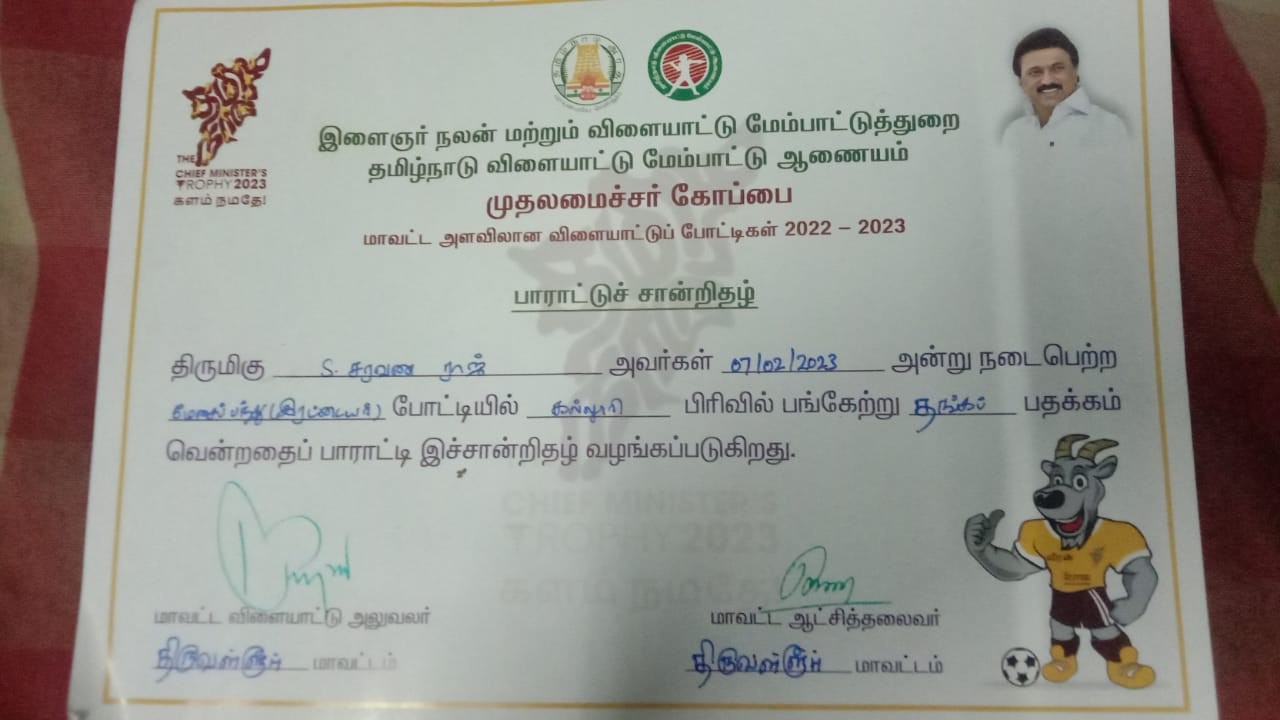 தமிழ்நாடு
THE
CHIEF MINISTER'S
TROPHY 2023
களம் நமதே!
இளைஞர் நலன் மற்றும் விளையாட்டு மேம்பாட்டுத்துறை
தமிழ்நாடு விளையாட்டு மேம்பாட்டு ஆணையம்
முதலமைச்சர் கோப்பை
மாவட்ட அளவிலான விளையாட்டுப் போட்டிகள் 2022 – 2023
பாராட்டுச் சான்றிதழ்
திருமிகு S. சரவண ராஜ் அவர்கள் 07/02/2023 அன்று நடைபெற்ற
மேசைபந்து (இரட்டையர்) போட்டியில் கல்லூரி பிரிவில் பங்கேற்று தங்கப் பதக்கம்
வென்றதைப் பாராட்டி இச்சான்றிதழ் வழங்கப்படுகிறது.
CHIEF MINISTER'S
TROPHY 2023
களம் நமதே!
மாவட்ட விளையாட்டு அலுவலர்
திருவள்ளூர் மாவட்டம்
மாவட்ட ஆட்சித்தலைவர்
திருவள்ளூர் மாவட்டம்